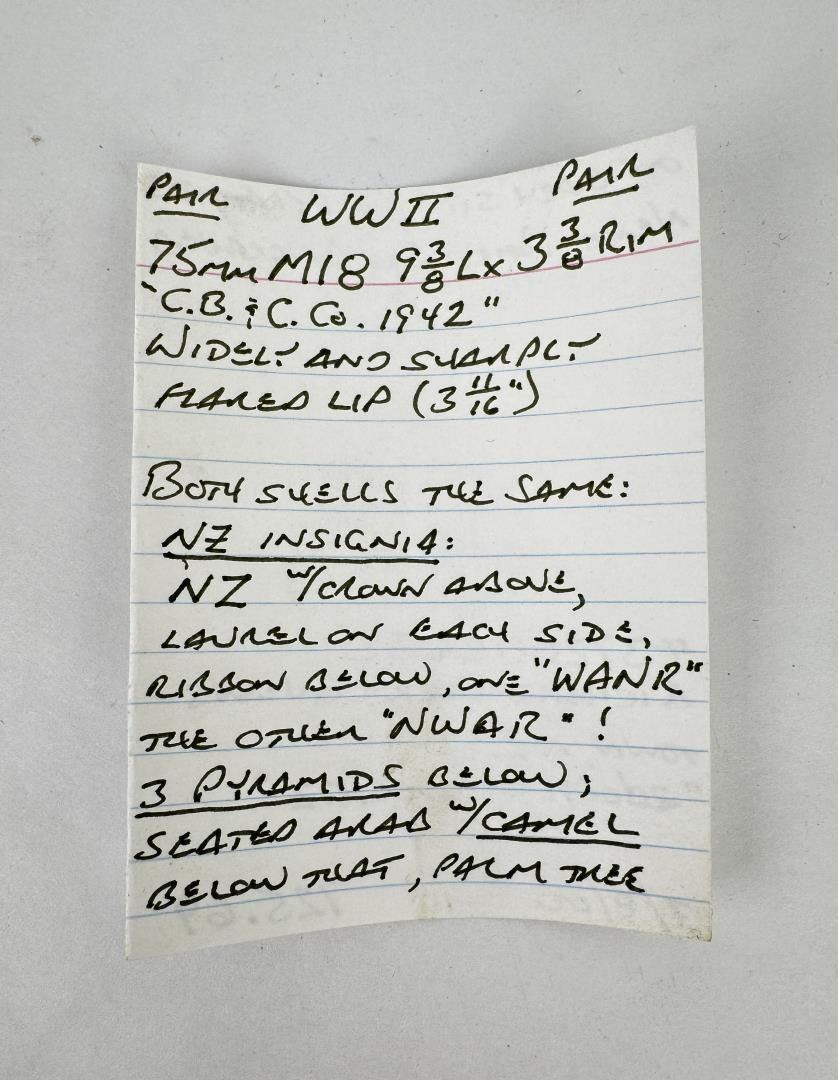 PAIR WWII PAIR
75mm M18 9 3/8 L x 3 3/8 RIM
"C.B. & C. Co. 1942"
WIDELY AND SHARPLY
FLARED LIP (3 11/16")
BOTH SHELLS THE SAME:
NZ INSIGNIA:
NZ w/CROWN ABOVE,
LAUREL ON EACH SIDE,
RIBBON BELOW, ONE "WANR"
THE OTHER "NWAR"!
3 PYRAMIDS BELOW;
SEATED ARAB w/CAMEL
BELOW THAT, PALM TREE